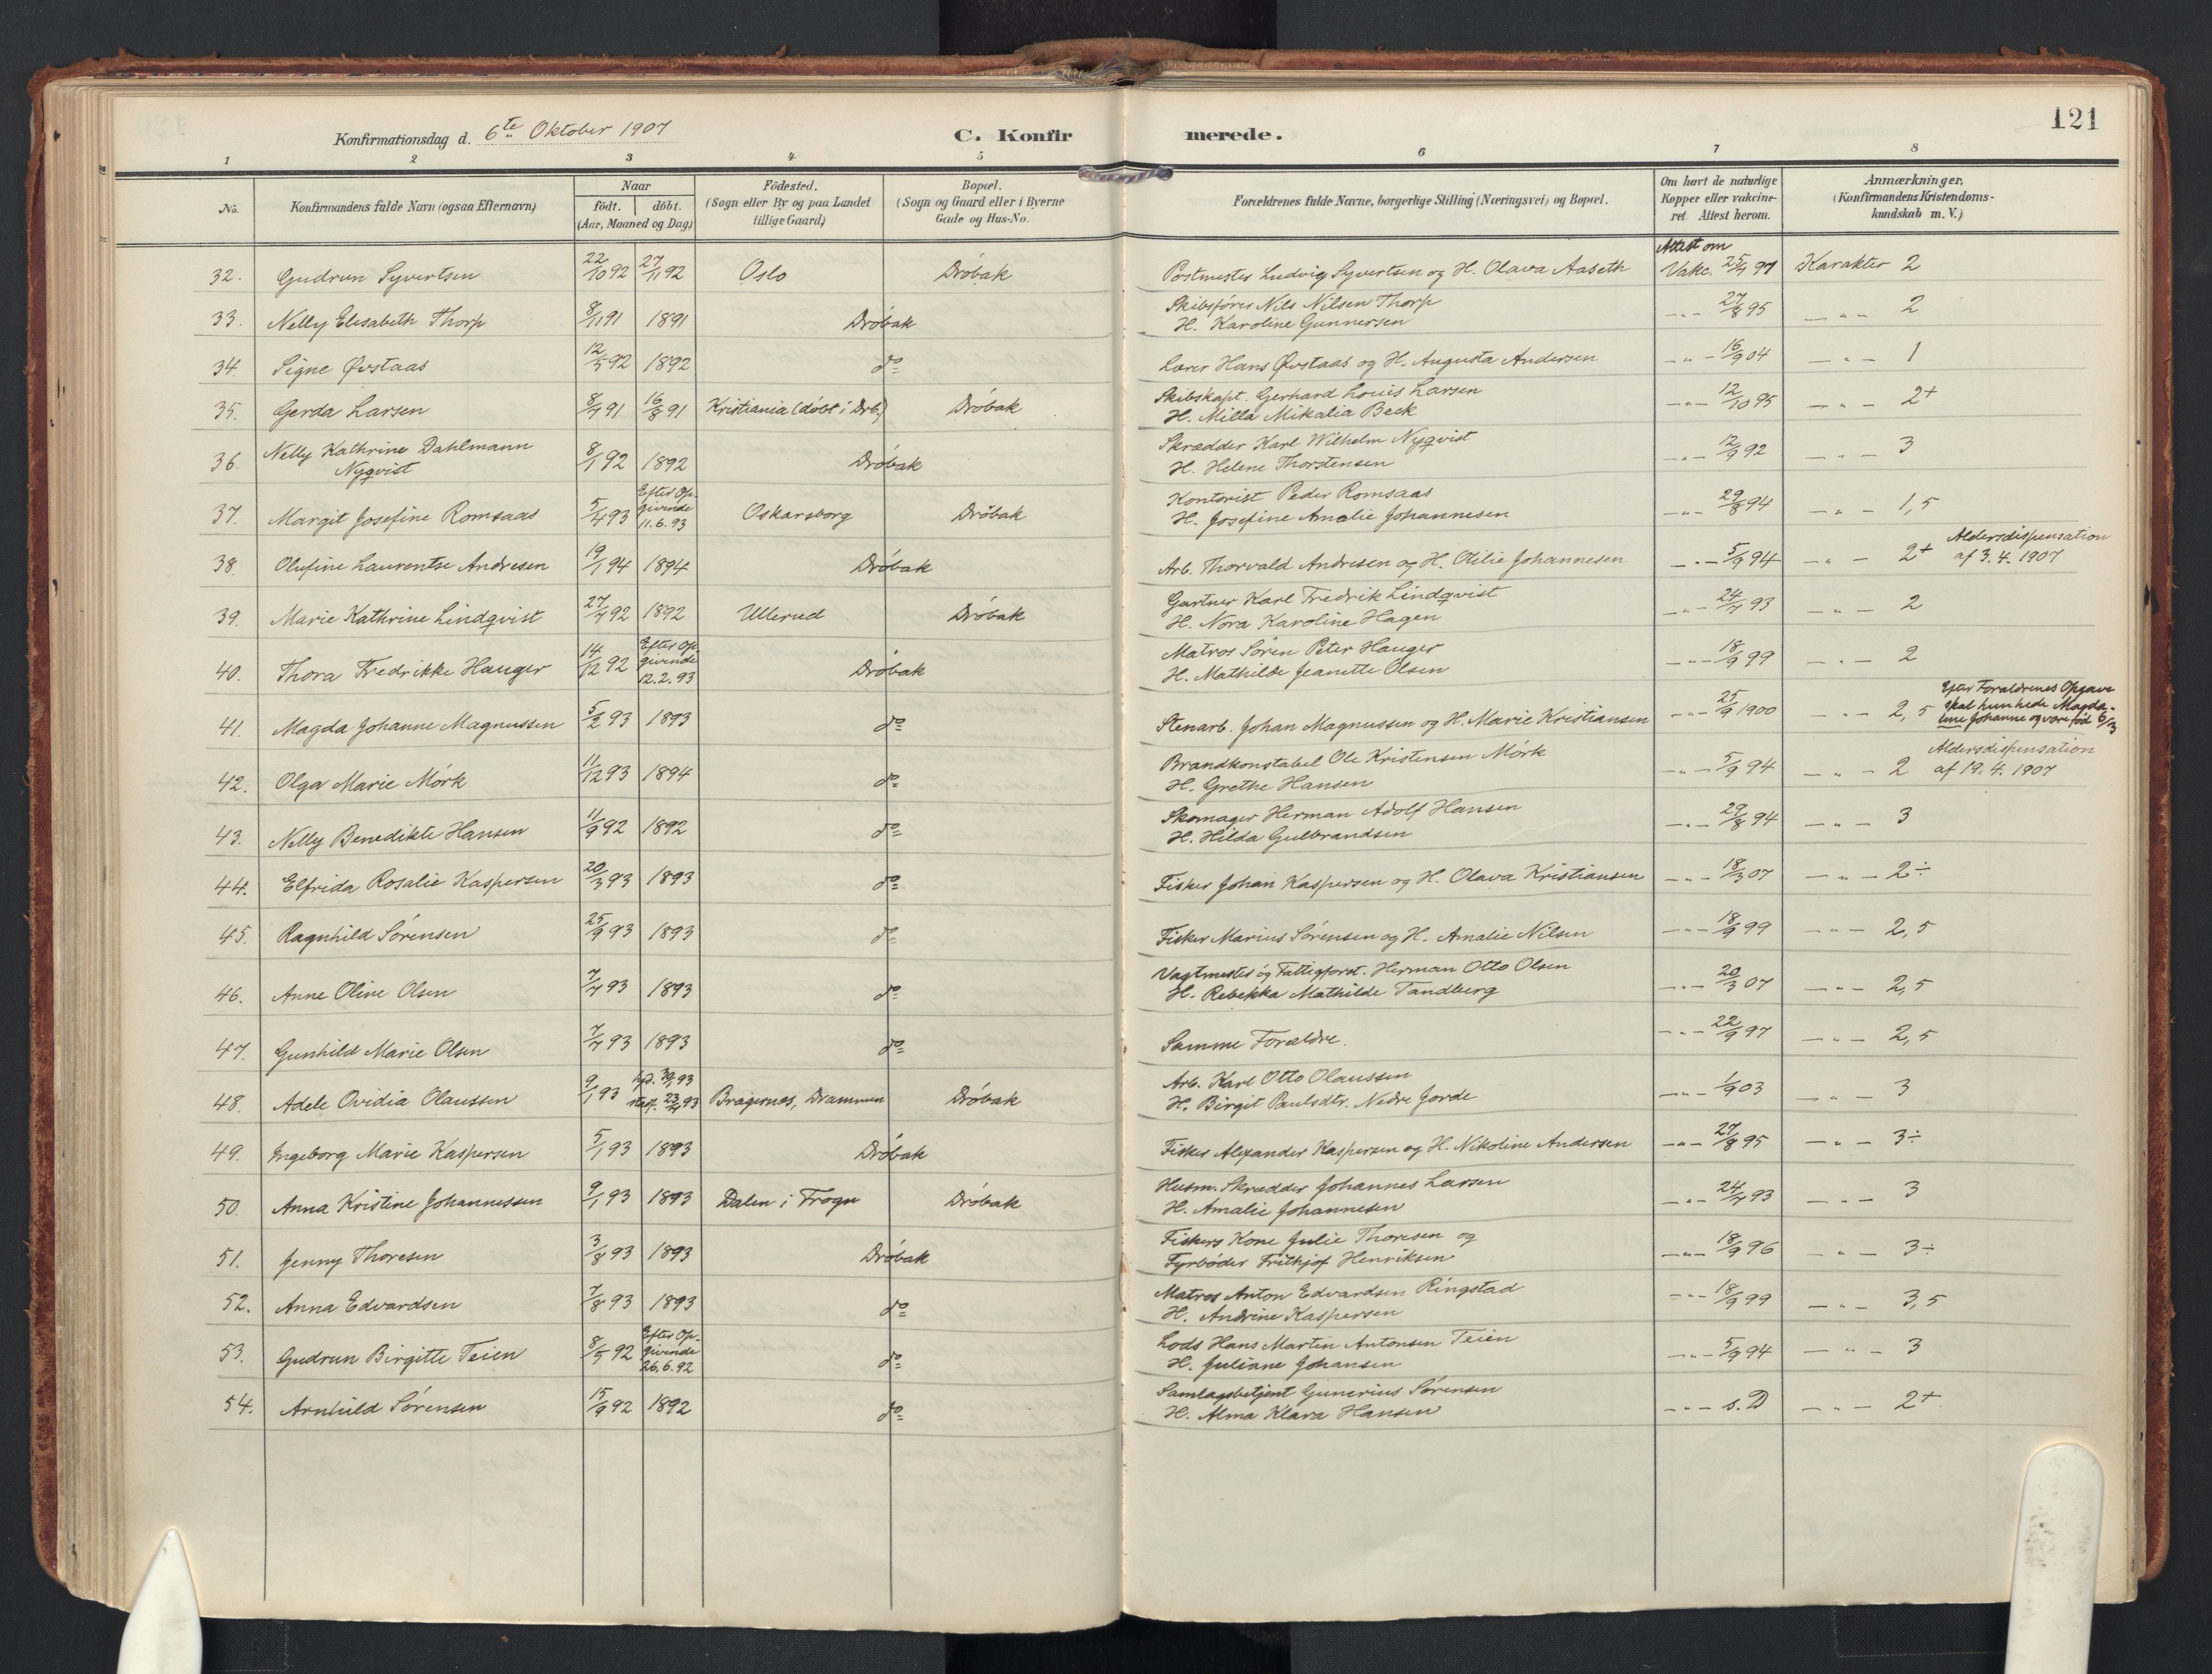 121
Konfirmationsdag d. 6te Oktober 1907 C. Konfir merede.
1 2 3 4 5 6 7 8
No. Konfirmandens fulde Navn (ogsaa Efternavn) Naar födt. döbt. (Aar, Maaned og Dag) Födested. (Sogn eller By og paa Landet tillige Gaard) Bopæl. (Sogn og Gaard eller i Byerne Gade og Hus-No. Forældrenes fulde Navne, borgerlige Stilling (Næringsvei) og Bopæl. Om havt de naturlige Kopper eller vakcineret. Attest herom. Anmærkninger. (Konfirmandens Kristendomskundskab m. V.)
32. Gudrun Syvertsen 22/10 92 27/11 92 Oslo Dröbak Postmester Ludvig Syvertsen og H. Olava Aaseth Attest om Vakc. 25/7 97 Karakter 2
33. Nelly Elisabeth Thorp 8/11 91 1891 Dröbak Skibsfører Nils Nilsen Thorp
H. Karoline Gunnersen — " — 27/8 95 — " — 2
34. Signe Øvstaas 12/5 92 1892 do Lærer Hans Øvstaas og H. Augusta Andersen — " — 16/9 04 — " — 1
35. Gerda Larsen 8/7 91 16/8 91 Kristiania (döbt i Drb.) Dröbak Skibskapt. Gerhard Louis Larsen
H. Milla Mikalia Beck — " — 12/10 95 — " — 2+
36. Nelly Kathrine Dahlmann
Nyqvist 8/1 92 1892 Dröbak Skrædder Karl Wilhelm Nyqvist
H. Helene Thorstensen — " — 12/9 92 — " — 3
37. Margit Josefine Romsaas 5/4 93 Efter Opgivende 11.6.93 Oskarsborg Dröbak Kontorist Peder Romsaas
H. Josefine Amalie Johannesen — " — 29/8 94 — " — 1,5
38. Olufine Laurentse Andresen 19/1 94 1894 Dröbak Arb. Thorvald Andresen og H. Otilie Johannesen — " — 5/9 94 — " — 2+ Aldersdispensation
af 3.4.1907
39. Marie Kathrine Lindqvist 27/7 92 1892 Ullerud Dröbak Gartner Karl Fredrik Lindqvist
H. Nora Karoline Hagen — " — 24/7 93 — " — 2
40. Thora Fredrikke Hauger 14/12 92 Efter Opgivende 12.2.93 Dröbak Matros Sören Peter Hauger
H. Mathilde Jeanette Olsen — " — 18/9 99 — " — 2
41. Magda Johanne Magnussen 5/2 93 1893 do Stenarb. Johan Magnussen og H. Marie Kristiansen — " — 25/9 1900 — " — 2,5 Efter Forældrenes Opgave
skal hun hede Magdalene Johanne og være född 6/3
42. Olga Marie Mörk 11/12 93 1894 do Brandkonstabel Ole Kristensen Mörk
H. Grethe Hansen — " — 5/9 94 — " — 2 Aldersdispensation
af 19.4.1907
43. Nelly Benedikte Hansen 11/9 92 1892 do Skomager Herman Adolf Hansen
H. Hilda Gulbrandsen — " — 29/8 94 — " — 3
44. Elfrida Rosalie Kaspersen 20/3 93 1893 do Fisker Johan Kaspersen og H. Olava Kristiansen — " — 18/3 07 — " — 2÷
45. Ragnhild Sörensen 25/9 93 1893 do Fisker Marius Sörensen og H. Amalie Nilsen — " — 18/9 99 — " — 2,5
46. Anne Oline Olsen 7/7 93 1893 do Vagtmester og Fattigforst. Herman Otto Olsen
H. Rebekka Mathilde Tandberg — " — 20/3 07 — " — 2,5
47. Gunhild Marie Olsen 7/7 93 1893 do Samme Forældre. — " — 22/9 97 — " — 2,5
48. Adele Ovidia Olaussen 9/1 93 hjd. 30/1 93 stadf. 23/7 93 Bragernæs, Drammen Dröbak Arb. Karl Otto Olaussen
H. Birgit Paulsdtr. Nedre Jorde — " — 1/9 03 — " — 3
49. Ingeborg Marie Kaspersen 5/1 93 1893 Dröbak Fisker Alexander Kaspersen og H. Nikoline Andersen — " — 27/8 95 — " — 3÷
50. Anna Kristine Johannessen 9/1 93 1893 Dalen i Frogn Dröbak Husm. Skrædder Johannes Larsen
H. Amalie Johannesen — " — 24/7 93 — " — 3
51. Jenny Thoresen 3/8 93 1893 Dröbak Fiskers Kone Julie Thoresen og
Fyrbøder Frithjof Henriksen — " — 18/9 96 — " — 3÷
52. Anna Edvardsen 7/8 93 1893 do Matros Anton Edvardsen Ringstad
H. Andrine Kaspersen — " — 18/9 99 — " — 3,5
53. Gudrun Birgitte Teien 8/5 92 Efter Opgivende 26.6.92 do Lods Hans Martin Antonsen Teien
H. Juliane Johansen — " — 5/9 94 — " — 3
54. Arnhild Sörensen 15/9 92 1892 do Samlagsbetjent Gunerius Sörensen
H. Alma Klara Hansen — " — s. D — " — 2+